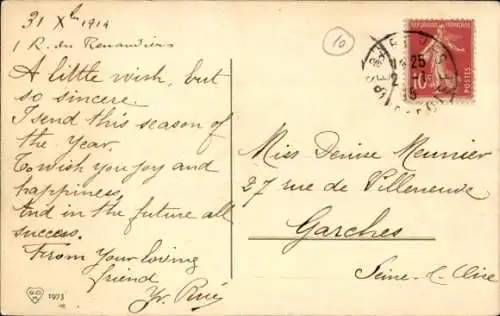 31 Xbre 1914
1 R. du Renaudiers
A little wish, but
so sincere.
I send this season of
the Year.
To wish you joy and
happiness,
And in the future all
success.
From your loving
friend
Yv.
1973
10
RÉPUBLIQUE FRANÇAISE
10c
POSTES
25
2-1
15
Miss Denise Meunier
27 rue de Villeneuve
Garches
Seine-&-Oise